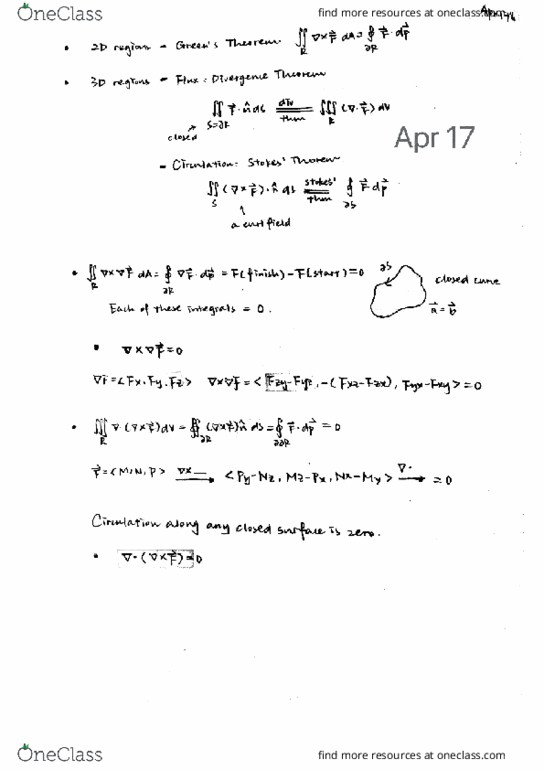 OneClass
find more resources at oneclass.com
• 2D regions – Green's Theorem ∬_R ∇×F⃗ dA = ∮_∂R F⃗·dp⃗
• 3D regions – Flux: Divergence Theorem
∬_{S=∂R} F⃗·n̂ ds =(div thm)= ∭_R (∇·F⃗) dV
closed
Apr 17
– Circulation: Stokes' Theorem
∬_S (∇×F⃗)·n̂ ds =(stokes' thm)= ∮_∂S F⃗ dp⃗
a curl field
• ∬_R ∇×∇F dA = ∮_∂R ∇F·dp⃗ = F(finish) – F(start) = 0
∂S
closed curve
a⃗ = b⃗
Each of these integrals = 0.
• ∇×∇F = 0
∇F = <Fx, Fy, Fz> ∇×∇F = <Fzy–Fyz, –(Fxz–Fzx), Fyx–Fxy> = 0
• ∭_R ∇·(∇×F⃗) dV = ∯_∂R (∇×F⃗) n̂ ds = ∮_∂∂R F⃗·dp⃗ = 0
F⃗ = <M, N, P> ∇×_ → <Py–Nz, Mz–Px, Nx–My> ∇· → = 0
Circulation along any closed surface is zero.
• ∇·(∇×F⃗) = 0
OneClass
find more resources at oneclass.com